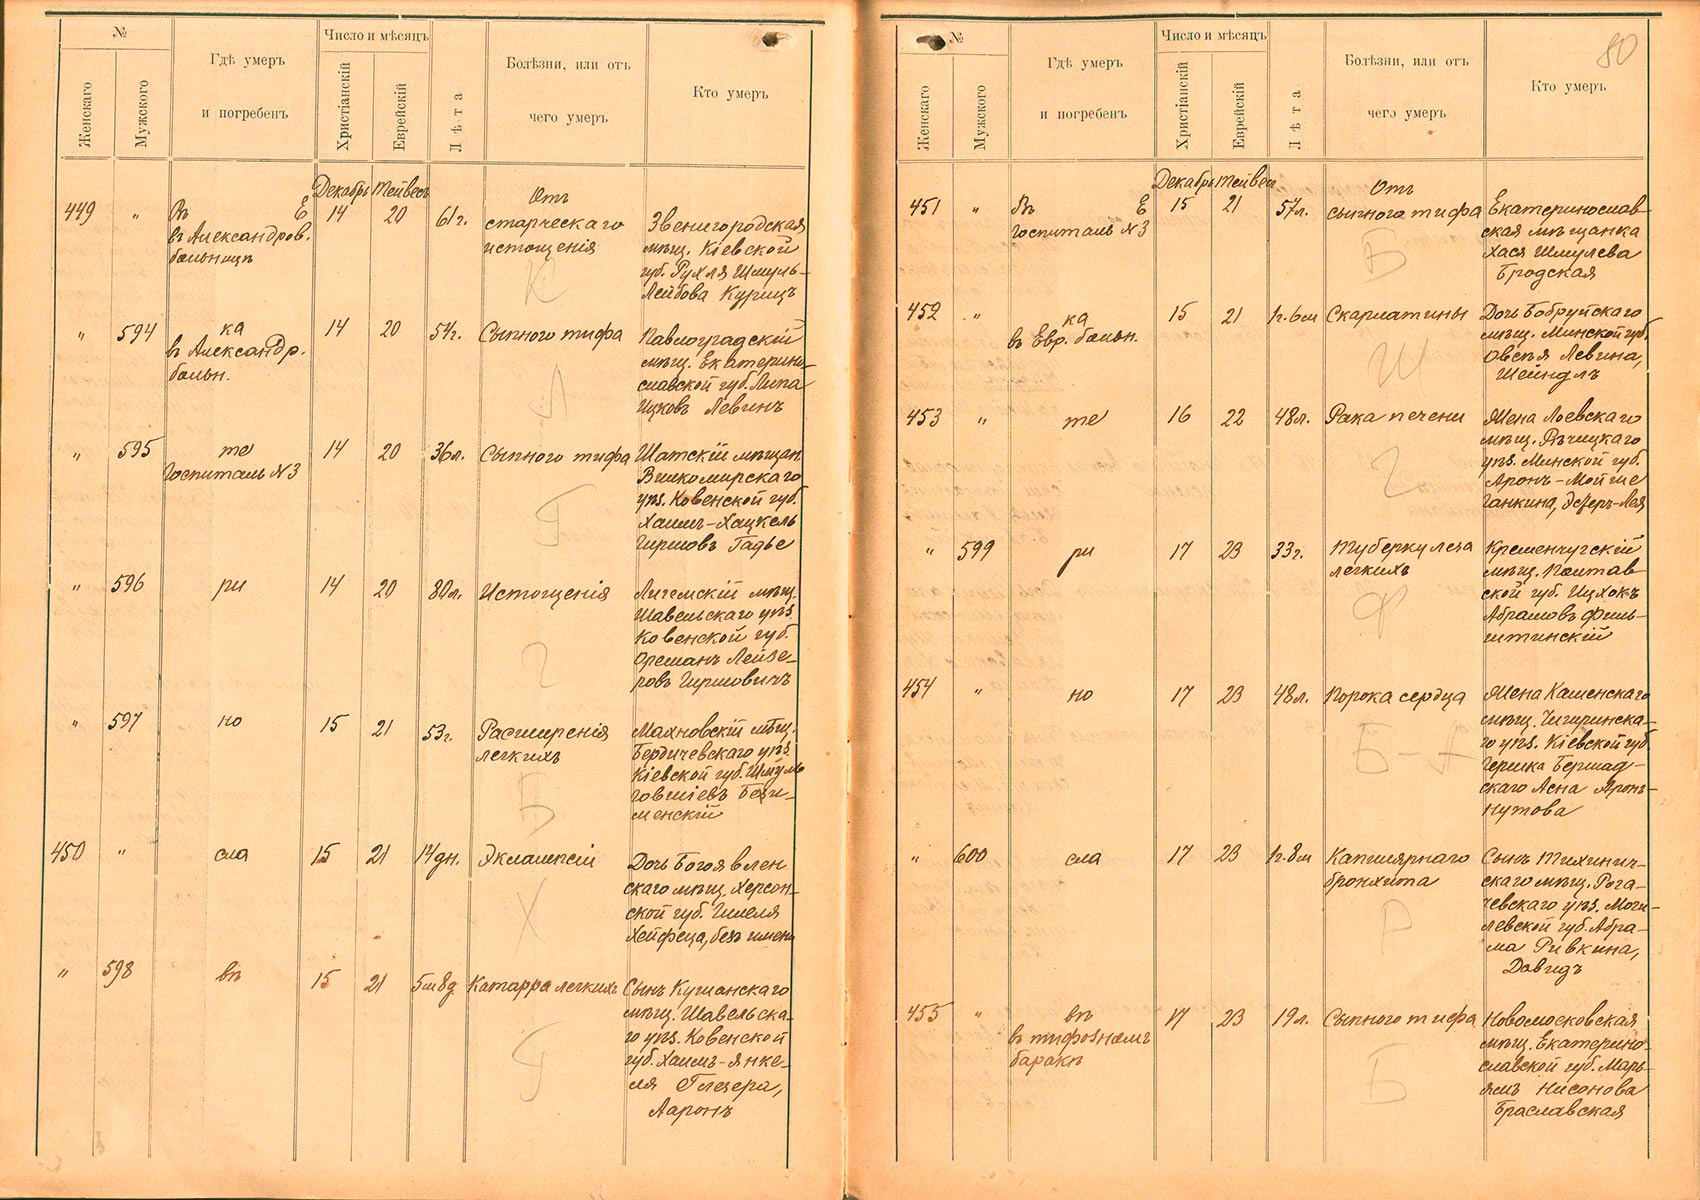 №
Женскаго
Мужского
Гдѣ умеръ
и погребенъ
Число и мѣсяцъ
Христіанскій
Еврейскій
Лѣта
Болѣзни, или отъ
чего умеръ
Кто умеръ
Декабрь Тейвесъ
449 " Въ Е 14 20 61г. Отъ
старческаго
истощенія
въ Александров.
больницѣ
Звенигородская
мѣщ. Кіевской
губ. Рухля Шмуль-
Лейбова Курицъ
" 594 ка 14 20 54г. Сыпного тифа
въ Александр.
больн.
Павлоградскій
мѣщ. Екатерино-
славской губ. Липа
Ицковъ Левинъ
" 595 те 14 20 36л. Сыпного тифа
Госпиталь №3
Шатскій мѣщан.
Вилкомирскаго
уѣз. Ковенской губ.
Хаимъ-Хацкель
Гиршовъ Гадье
" 596 ри 14 20 80л. Истощенія
мѣщ.
Шавельскаго уѣз.
Ковенской губ.
Орешанъ Лейзе-
ровъ Гиршовичъ
" 597 но 15 21 53г. Расширенія
легкихъ
Махновскій мѣщ.
Бердичевскаго уѣз.
Кіевской губ. Шмуль
Говшіевъ Бези-
менскій
450 " сла 15 21 14дн. Эклампсіи
Дочь Богоявлен
скаго мѣщ. Херсон-
ской губ. Гилеля
Хейфеца, безъ имени
" 598 въ 15 21 5м8д Катарра легкихъ
Сынъ Куршанскаго
мѣщ. Шавельска-
го уѣз. Ковенской
губ. Хаимъ-Янке-
ля Глезера,
Ааронъ
80
№
Женскаго
Мужского
Гдѣ умеръ
и погребенъ
Число и мѣсяцъ
Христіанскій
Еврейскій
Лѣта
Болѣзни, или отъ
чего умеръ
Кто умеръ
Декабрь Тейвесъ
451 " Въ Е 15 21 57л. Отъ
сыпного тифа
Госпиталь №3
Екатеринослав
ская мѣщанка
Хася Шмулева
Бродская
452 " ка 15 21 1г.6м Скарлатины
въ Евр. больн.
Дочь Бобруйскаго
мѣщ. Минской губ.
Овсѣя Левина,
Шейндлъ
453 " те 16 22 48л. Рака печени
Жена Лоевскаго
мѣщ. Рѣчицкаго
уѣз. Минской губ.
Аронъ-Мойше
Ганкина, Эсѳеръ-Лея
" 599 ри 17 23 33г. Туберкулеза
легкихъ
Кременчугскій
мѣщ. Полтав
ской губ. Ицхокъ
Абрамовъ Филь-
штинскій
454 " но 17 23 48л. Порока сердца
Жена Каменскаго
мѣщ. Чигиринска-
го уѣз. Кіевской губ
Гершка Бершад-
скаго Асна Аронъ-
Нутова
" 600 сла 17 23 1г.8м Капилярнаго
бронхита
Сынъ Тихинич-
скаго мѣщ. Рога-
чевскаго уѣз. Моги-
левской губ. Абра-
ма Ривкина,
Довидъ
455 " въ 17 23 19л. Сыпного тифа
въ тифозномъ
баракѣ
Новомосковская
мѣщ. Екатерино-
славской губ. Марь-
ямъ Нисонова
Браславская